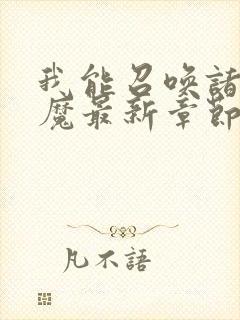 我能召唤諸
魔最新章節
凡不語